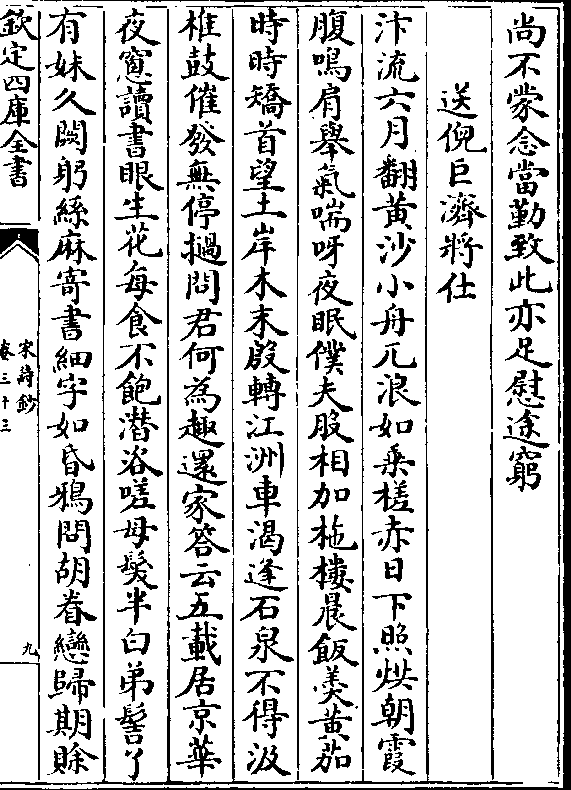 尚不蒙念當勤致此亦足慰途窮
送倪巨濟將仕
汴流六月翻黃沙小舟兀浪如乗槎赤日下照烘朝霞
腹鳴肩舉氣喘呀夜眠僕夫股相加柂樓晨飯羮黃茄
時時矯首望土岸木末殷轉江洲車渇逢石泉不得汲
椎鼓催發無停撾問君何為趣還家答云五載居京華
夜窻讀書眼生花每食不飽潜浴嗟母髪半白弟髻丫
有妹久闕躬絲麻寄書細字如昏鴉問胡眷戀歸期賖
欽定四庫全書
宋詩鈔
卷三十三
九